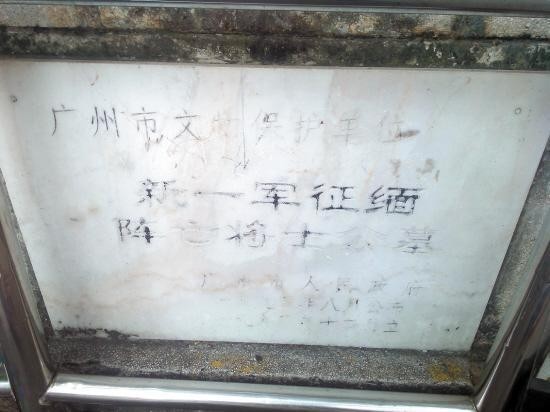 广州市文物保护单位
新一军征缅
阵亡将士公墓
广州市人民政府